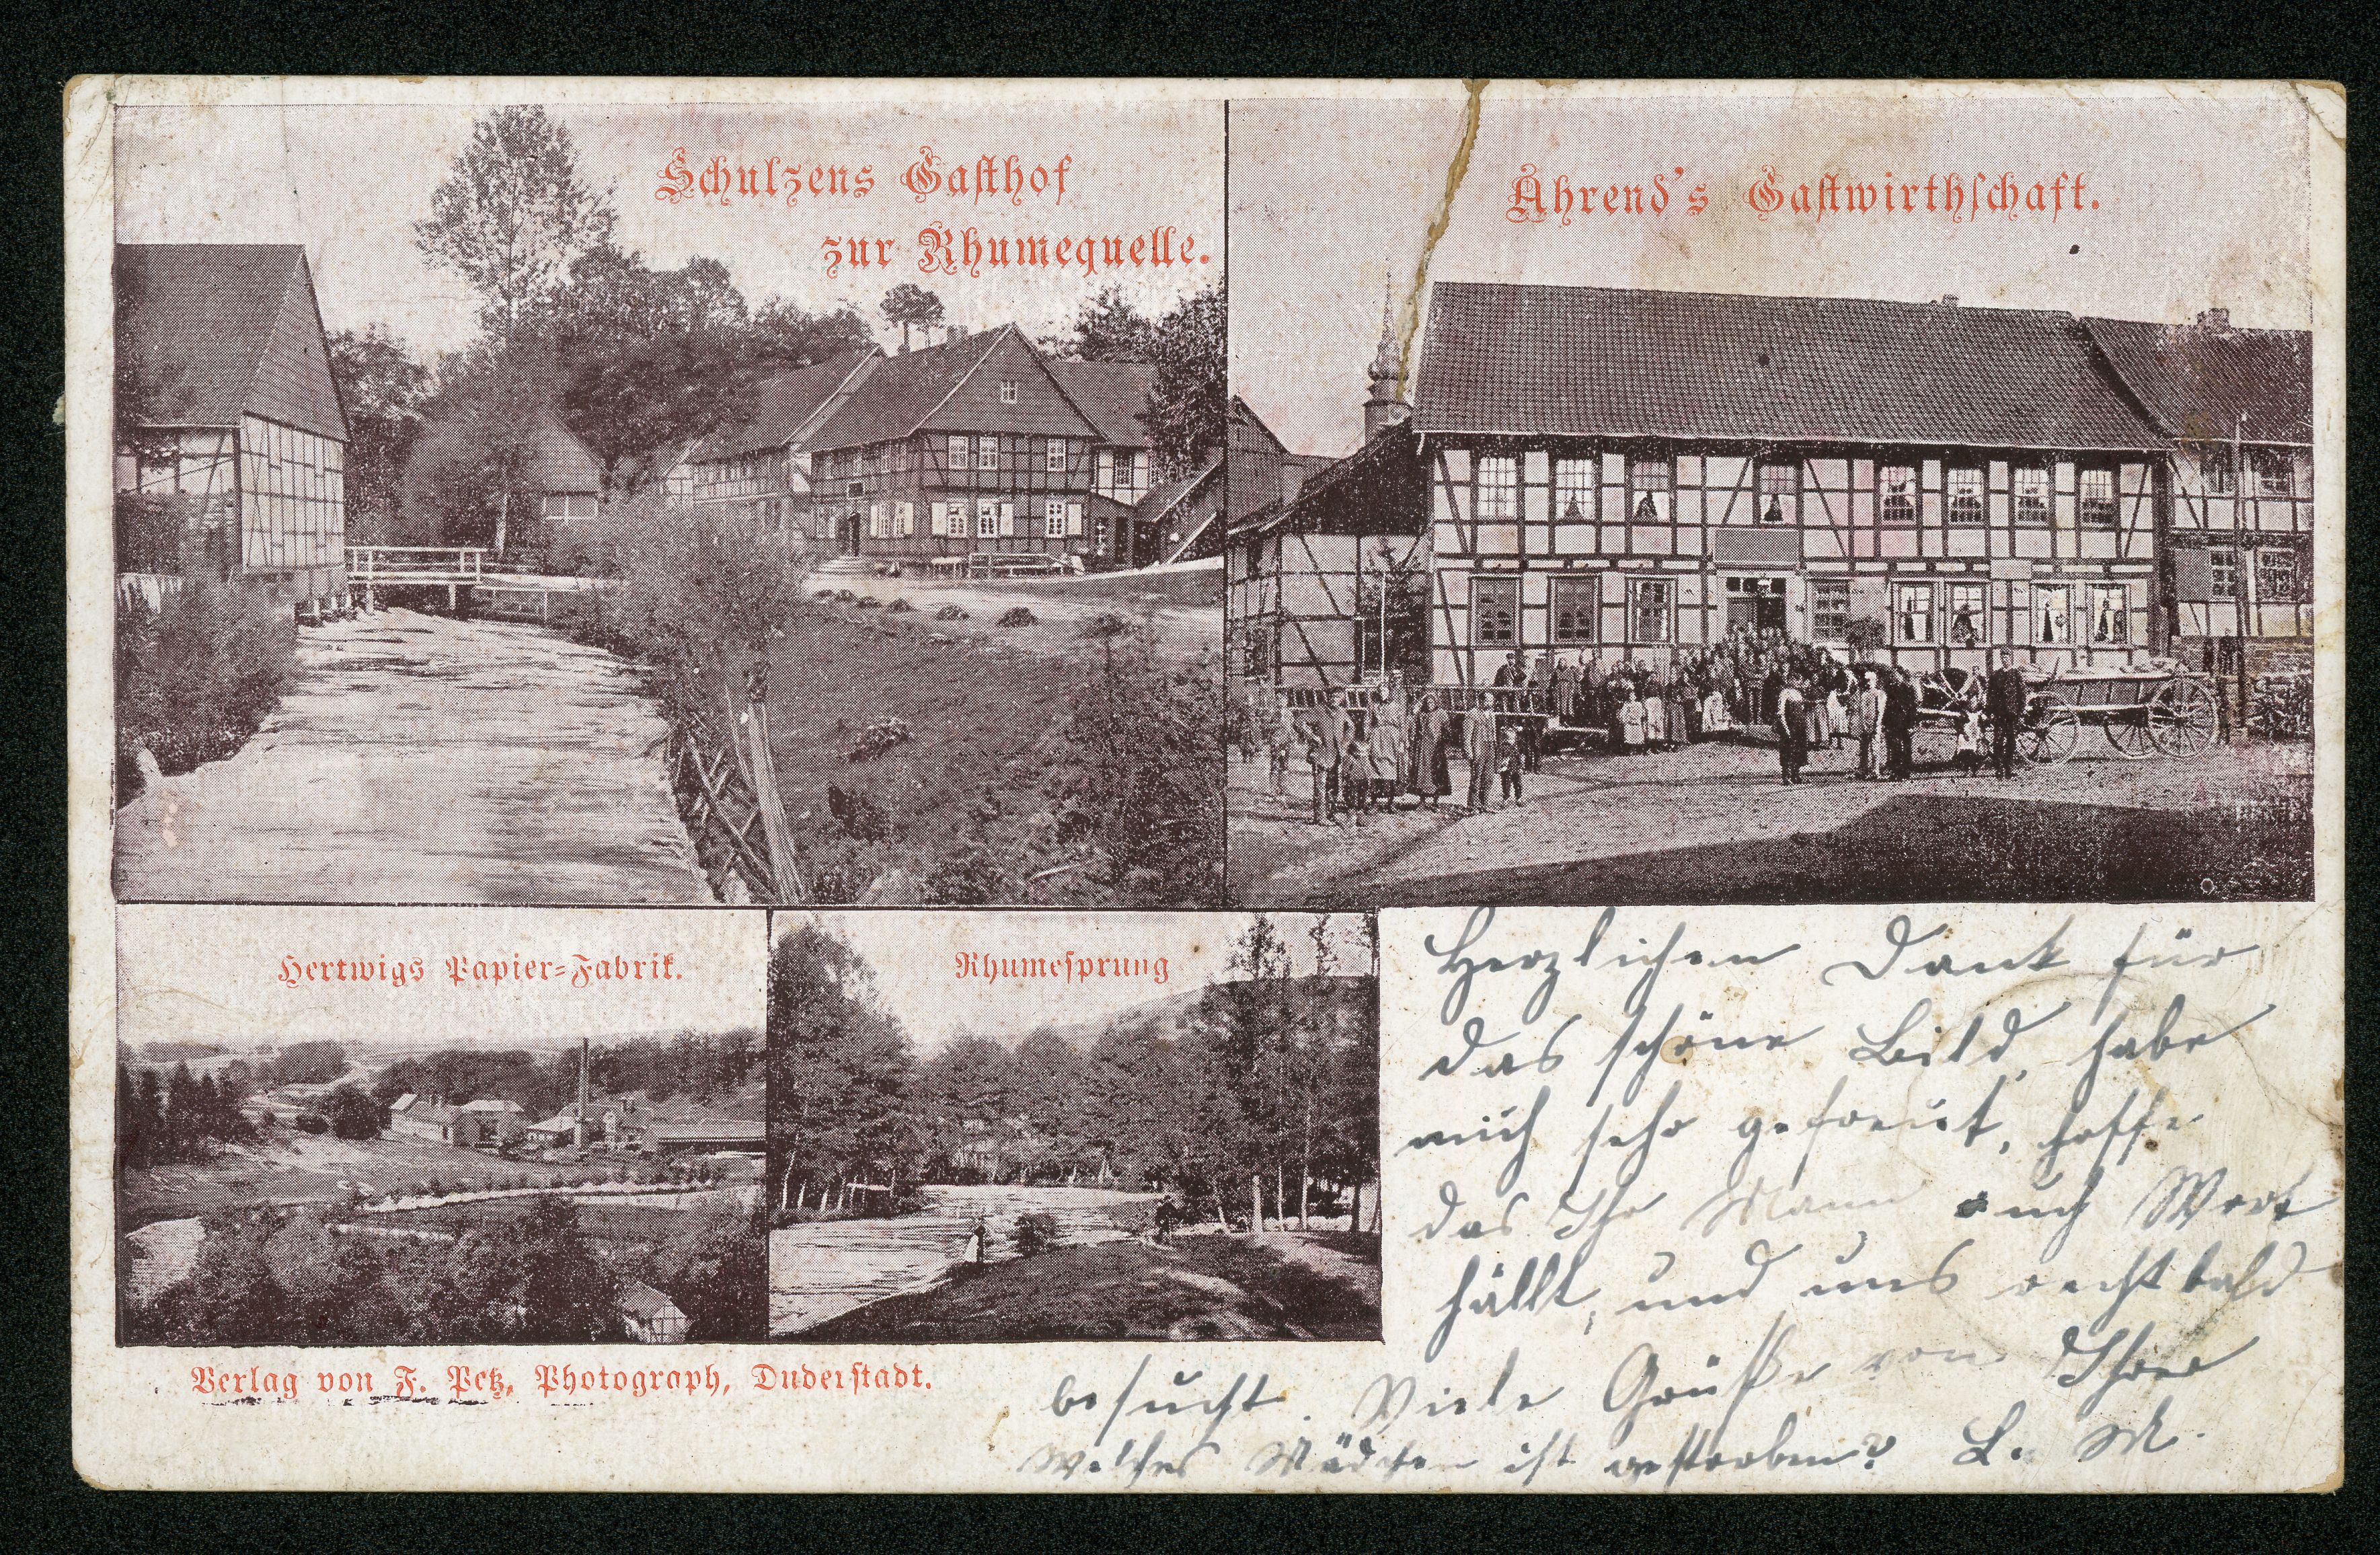 Schulzens Gasthof
zur Rhumequelle.
Ahrend's Gastwirthschaft.
Hertwigs Papier=Fabrik.
Rhumesprung
Herzlichen Dank für
das schöne Bild, habe
mich sehr gefreut, hoffe
das Ihr Mann auch Wort
hällt, und uns recht bald
besucht. Viele Grüße von Ihrer
Welches Mädchen ist gestorben? L. M.
Verlag von F. Petz, Photograph, Duderstadt.